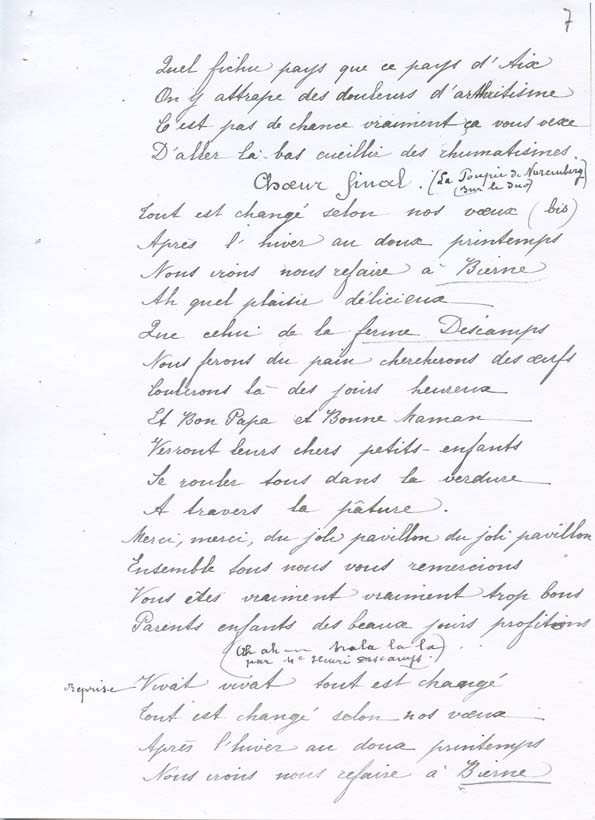 7
Quel fichu pays que ce pays d'Aix
On y attrape des douleurs d'arthritisme
C'est pas de chance vraiment ça vous vexe
D'aller là bas cueillir des rhumatismes
Chœur Final. (La Poupée de Nuremberg)
(sur le duo)
Tout est changé selon nos vœux (bis)
Après l'hiver au doux printemps
Nous irons nous refaire à Bierne
Ah quel plaisir délicieux
Que celui de la ferme Descamps
Nous ferons du pain chercherons des œufs
Coulerons là des jours heureux
Et Bon Papa et Bonne Maman
Verront leurs chers petits-enfants
Se rouler tous dans la verdure
A travers la pâture.
Merci, merci, du joli pavillon du joli pavillon
Ensemble tous nous vous remercions
Vous êtes vraiment vraiment trop bons
Parents enfants des beaux jours profitons
(Ah ah tralala la
par Mr Henri Descamps.)
reprise Vivat vivat tout est changé
Tout est changé selon nos vœux
Après l'hiver au doux printemps
Nous irons nous refaire à Bierne